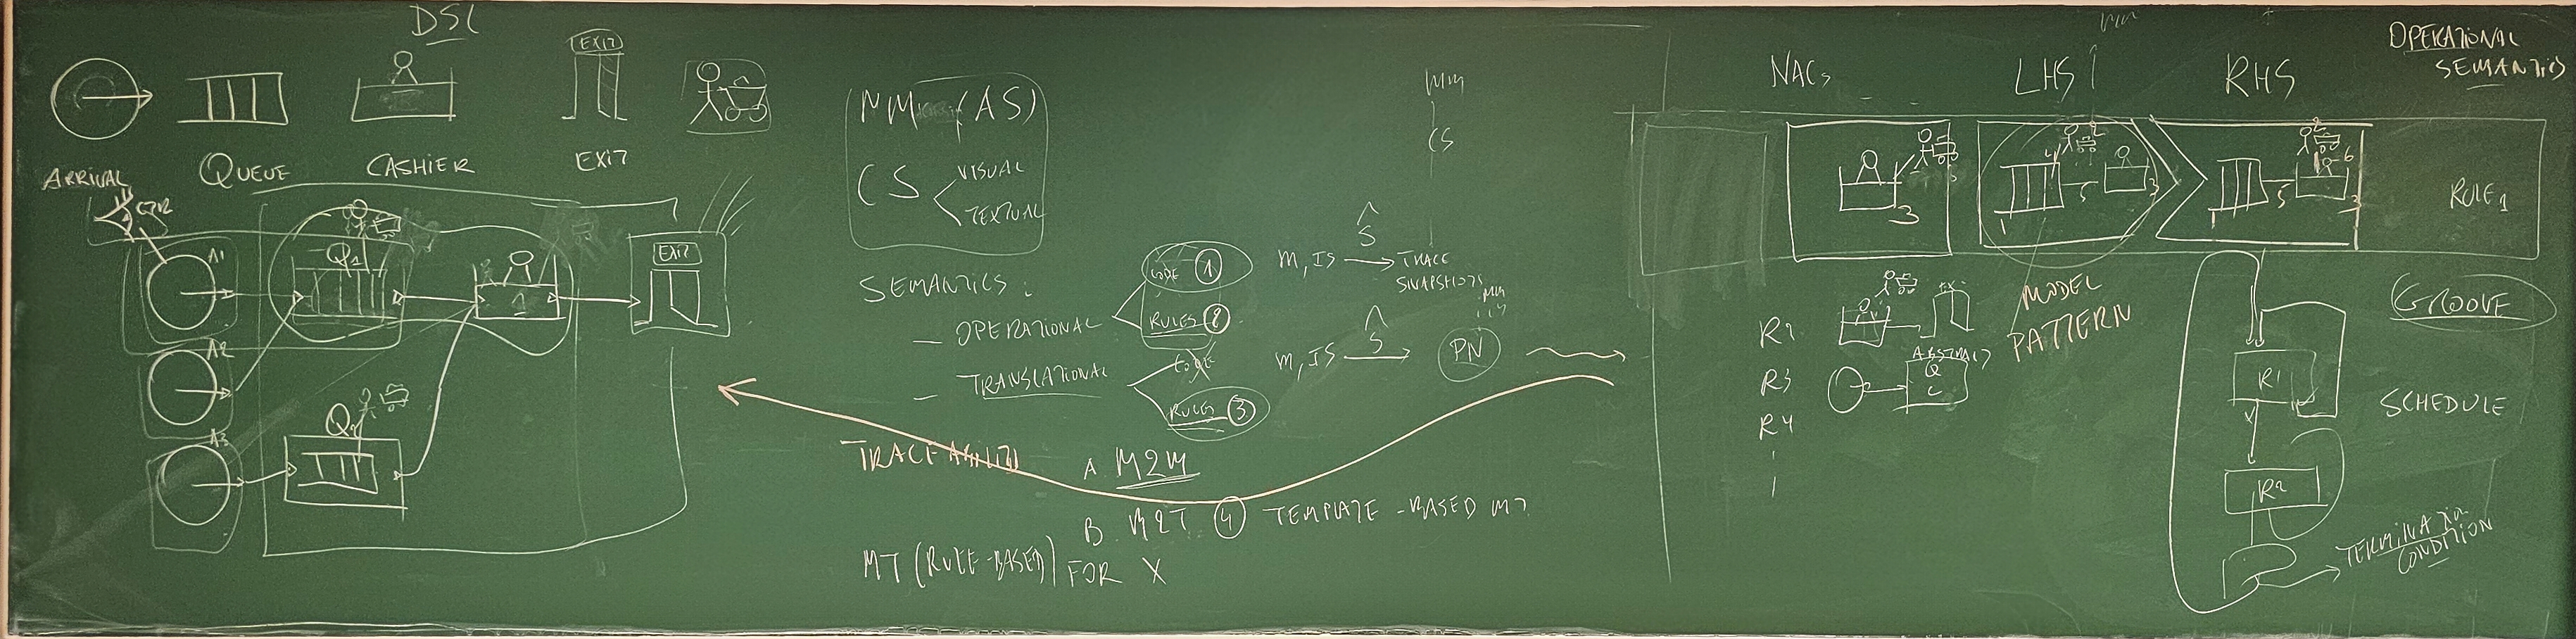 DSL
EXIT
ARRIVAL
QUEUE
CASHIER
EXIT
CTR
A1
Q1
1
EXIT
A2
A3
MM (AS)
CS
VISUAL
TEXTUAL
SEMANTICS:
- OPERATIONAL
CODE 1
RULES 2
- TRANSLATIONAL
CODE
RULES 3
MM
CS
M, IS
S
TRACE
SNAPSHOTS
MM
M, IS
S
PN
TRACEABILITY
A M2M
B. M2T 4 TEMPLATE-BASED MT
MT (RULE-BASED) FOR X
MM
NACs
LHS
RHS
OPERATIONAL
SEMANTICS
3
1
5
3
1
5
3
6
RULE 1
MODEL
PATTERN
GROOVE
R2
R3
ABSTRACT
Q
C
R4
R1
SCHEDULE
R2
TERMINATION
CONDITION